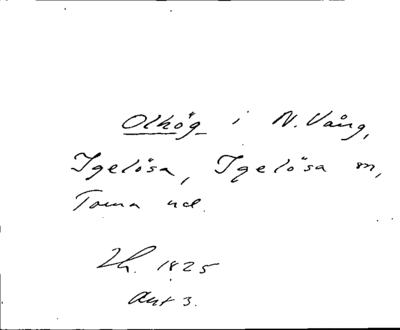 Olhög i N. Vång,
Igelösa, Igelösa sn,
Torna hd.
Zh. 1825
Akt 3.